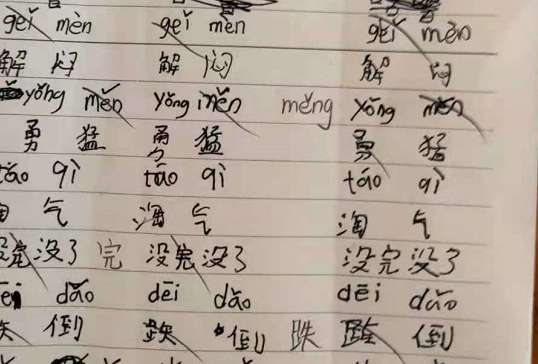 geǐ mèn geǐ mèn geǐ mèn
解 闷 解 闷 解 闷
yǒng měn yǒng měn měng yǒng měn
勇 猛 勇 猛 勇 猛
táo qì táo qì táo qì
淘 气 淘 气 淘 气
没完没了 完 没完没了 没完没了
dēi dǎo dēi dǎo dēi dǎo
跌 倒 跌 倒 跌 倒